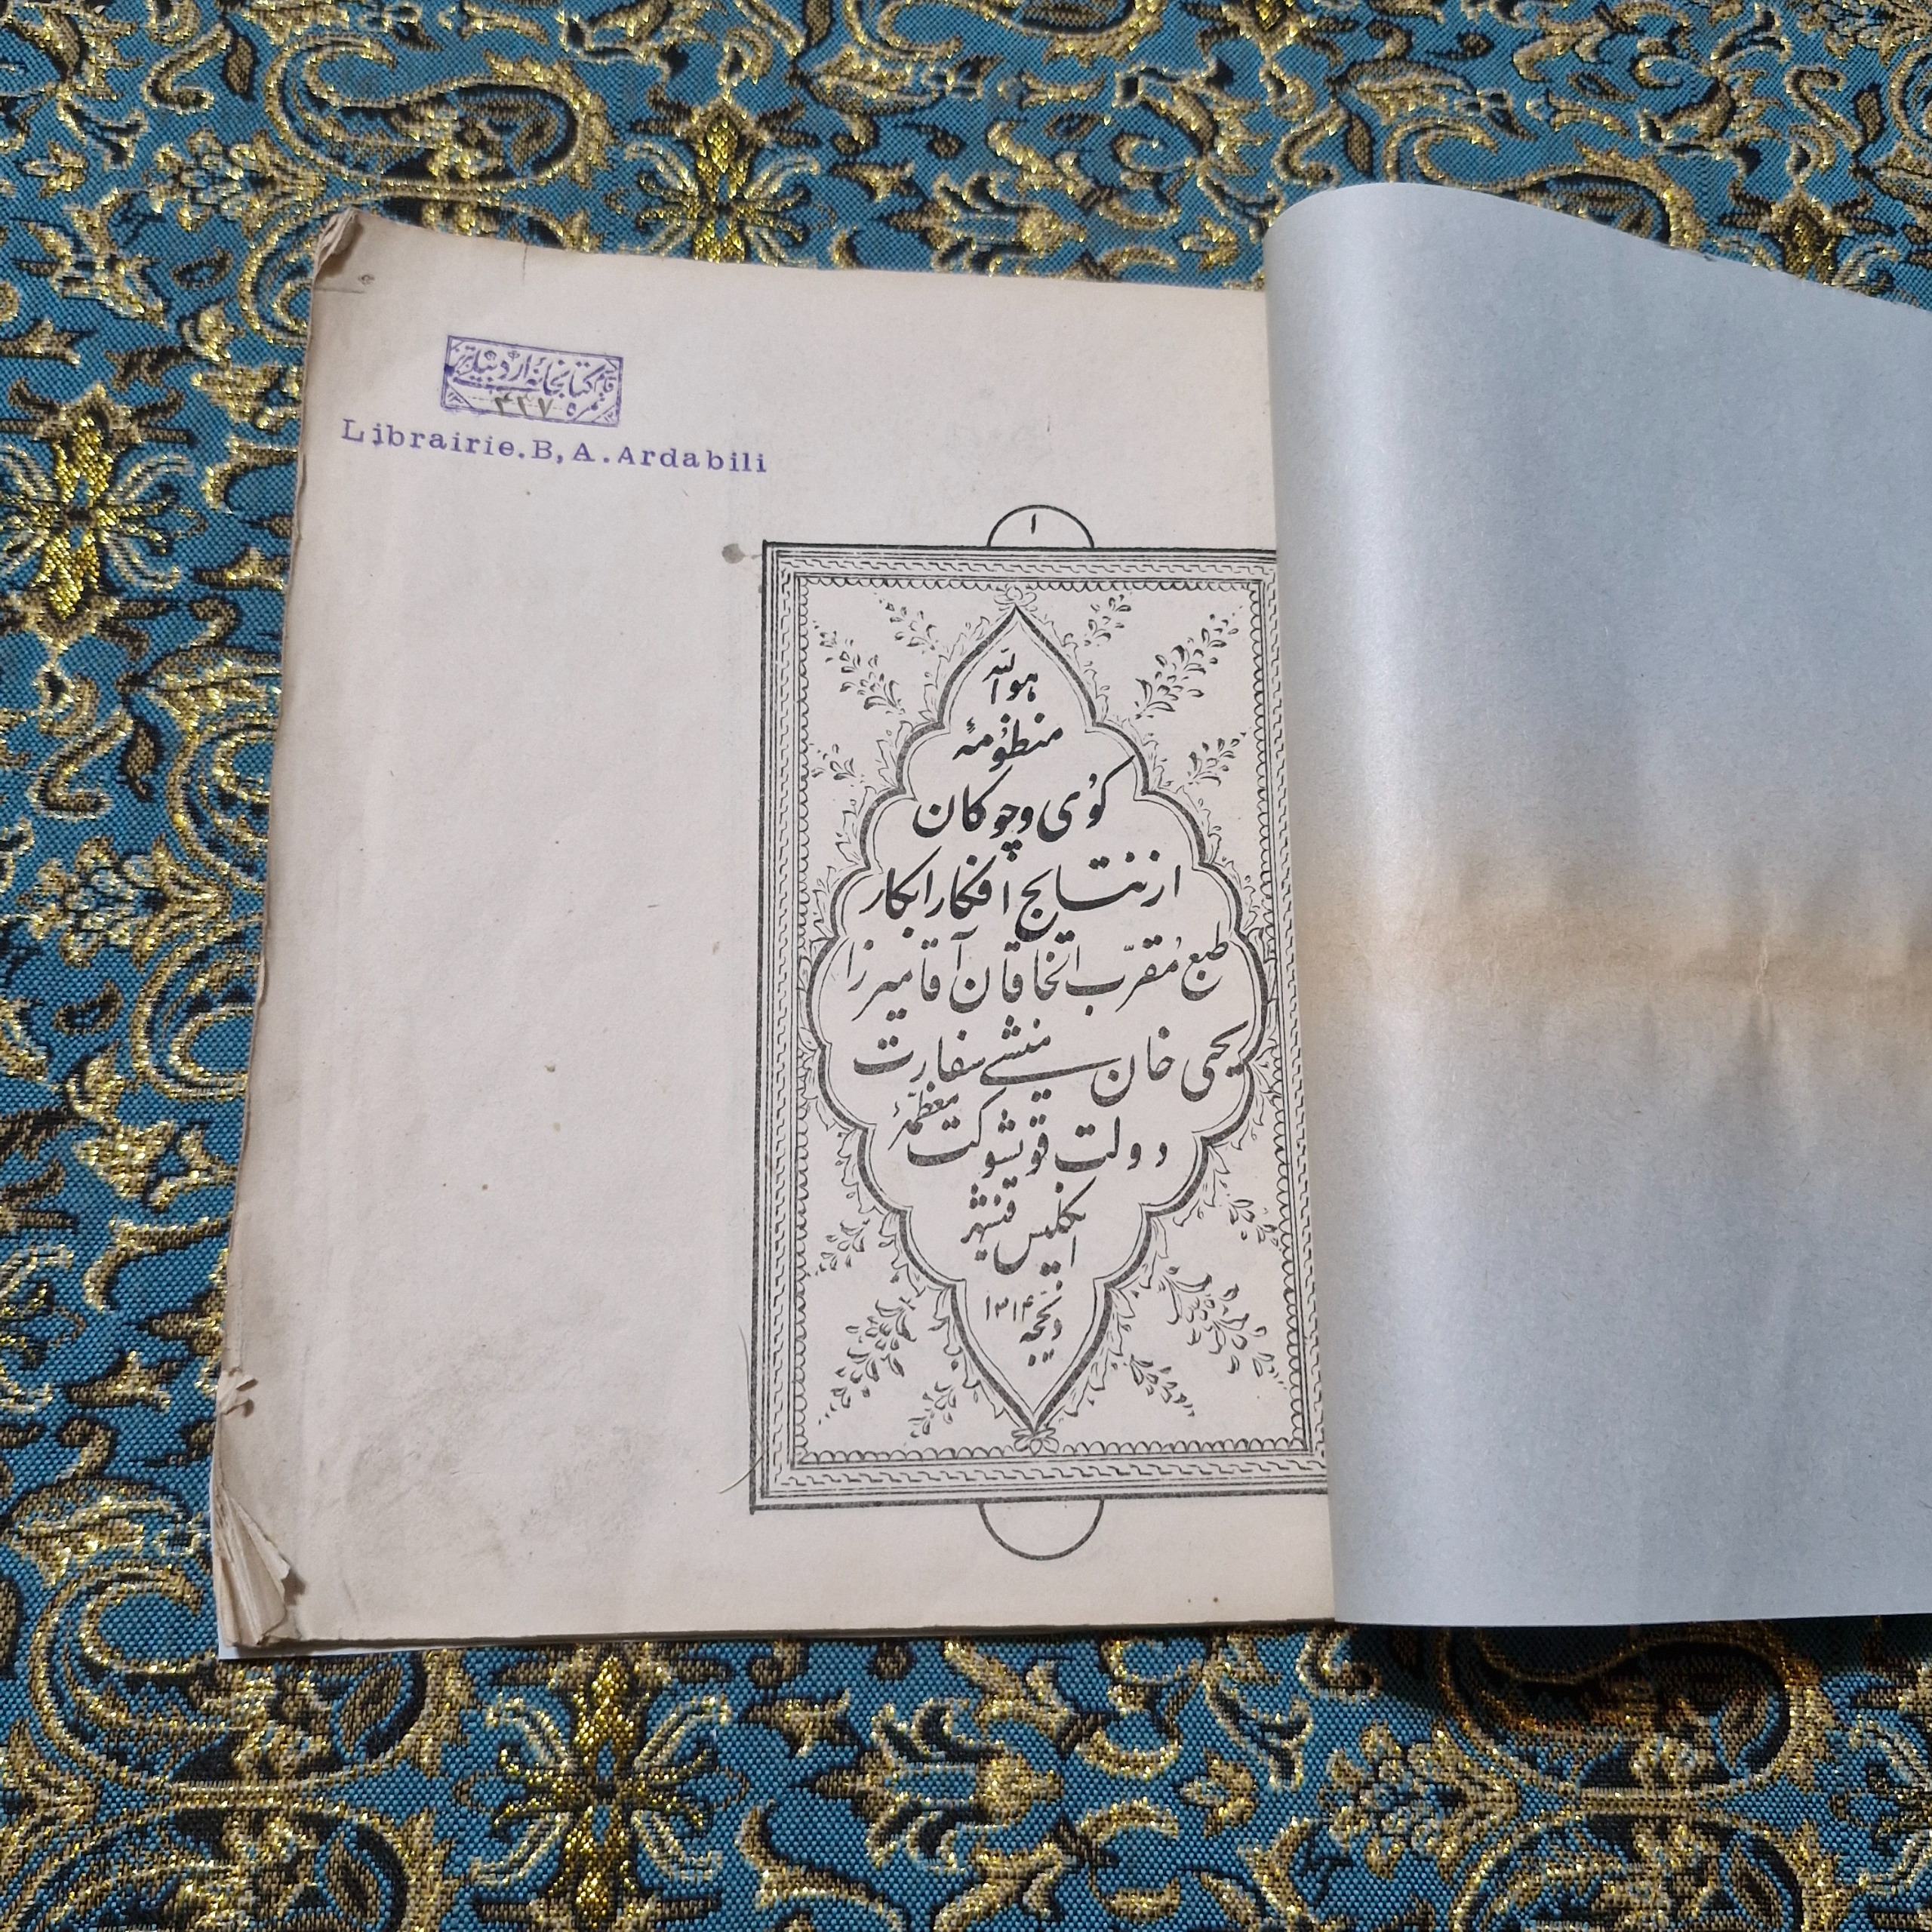 قائم کتابخانهٔ اردبیلی تبریز
نمره ۴۲۷
Librairie.B,A.Ardabili
۱
هوالله
منظومهٔ
کوُی وچوکان
از نتایج افکار ابکار
طبع مُقرّب الخاقان آقا میرزا
یحیی خان منشی سفارت
دولت قویشوکت معظّمهٔ
انکلیس قنشهر
ذیحجه ۱۳۱۴